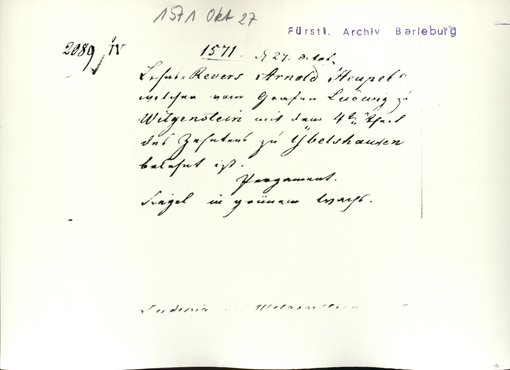 1571 Okt 27
Fürstl. Archiv Berleburg
2089 IV
1571. d 27. Octob.
Lehns Revers Arnold Heupel
welcher vom Grafen Ludwig zu
Witgenstein mit dem 4ten Theil
des Zehntens zu Ybelshausen
belehnt ist.
Pergament.
Siegel in grünem Wachs.